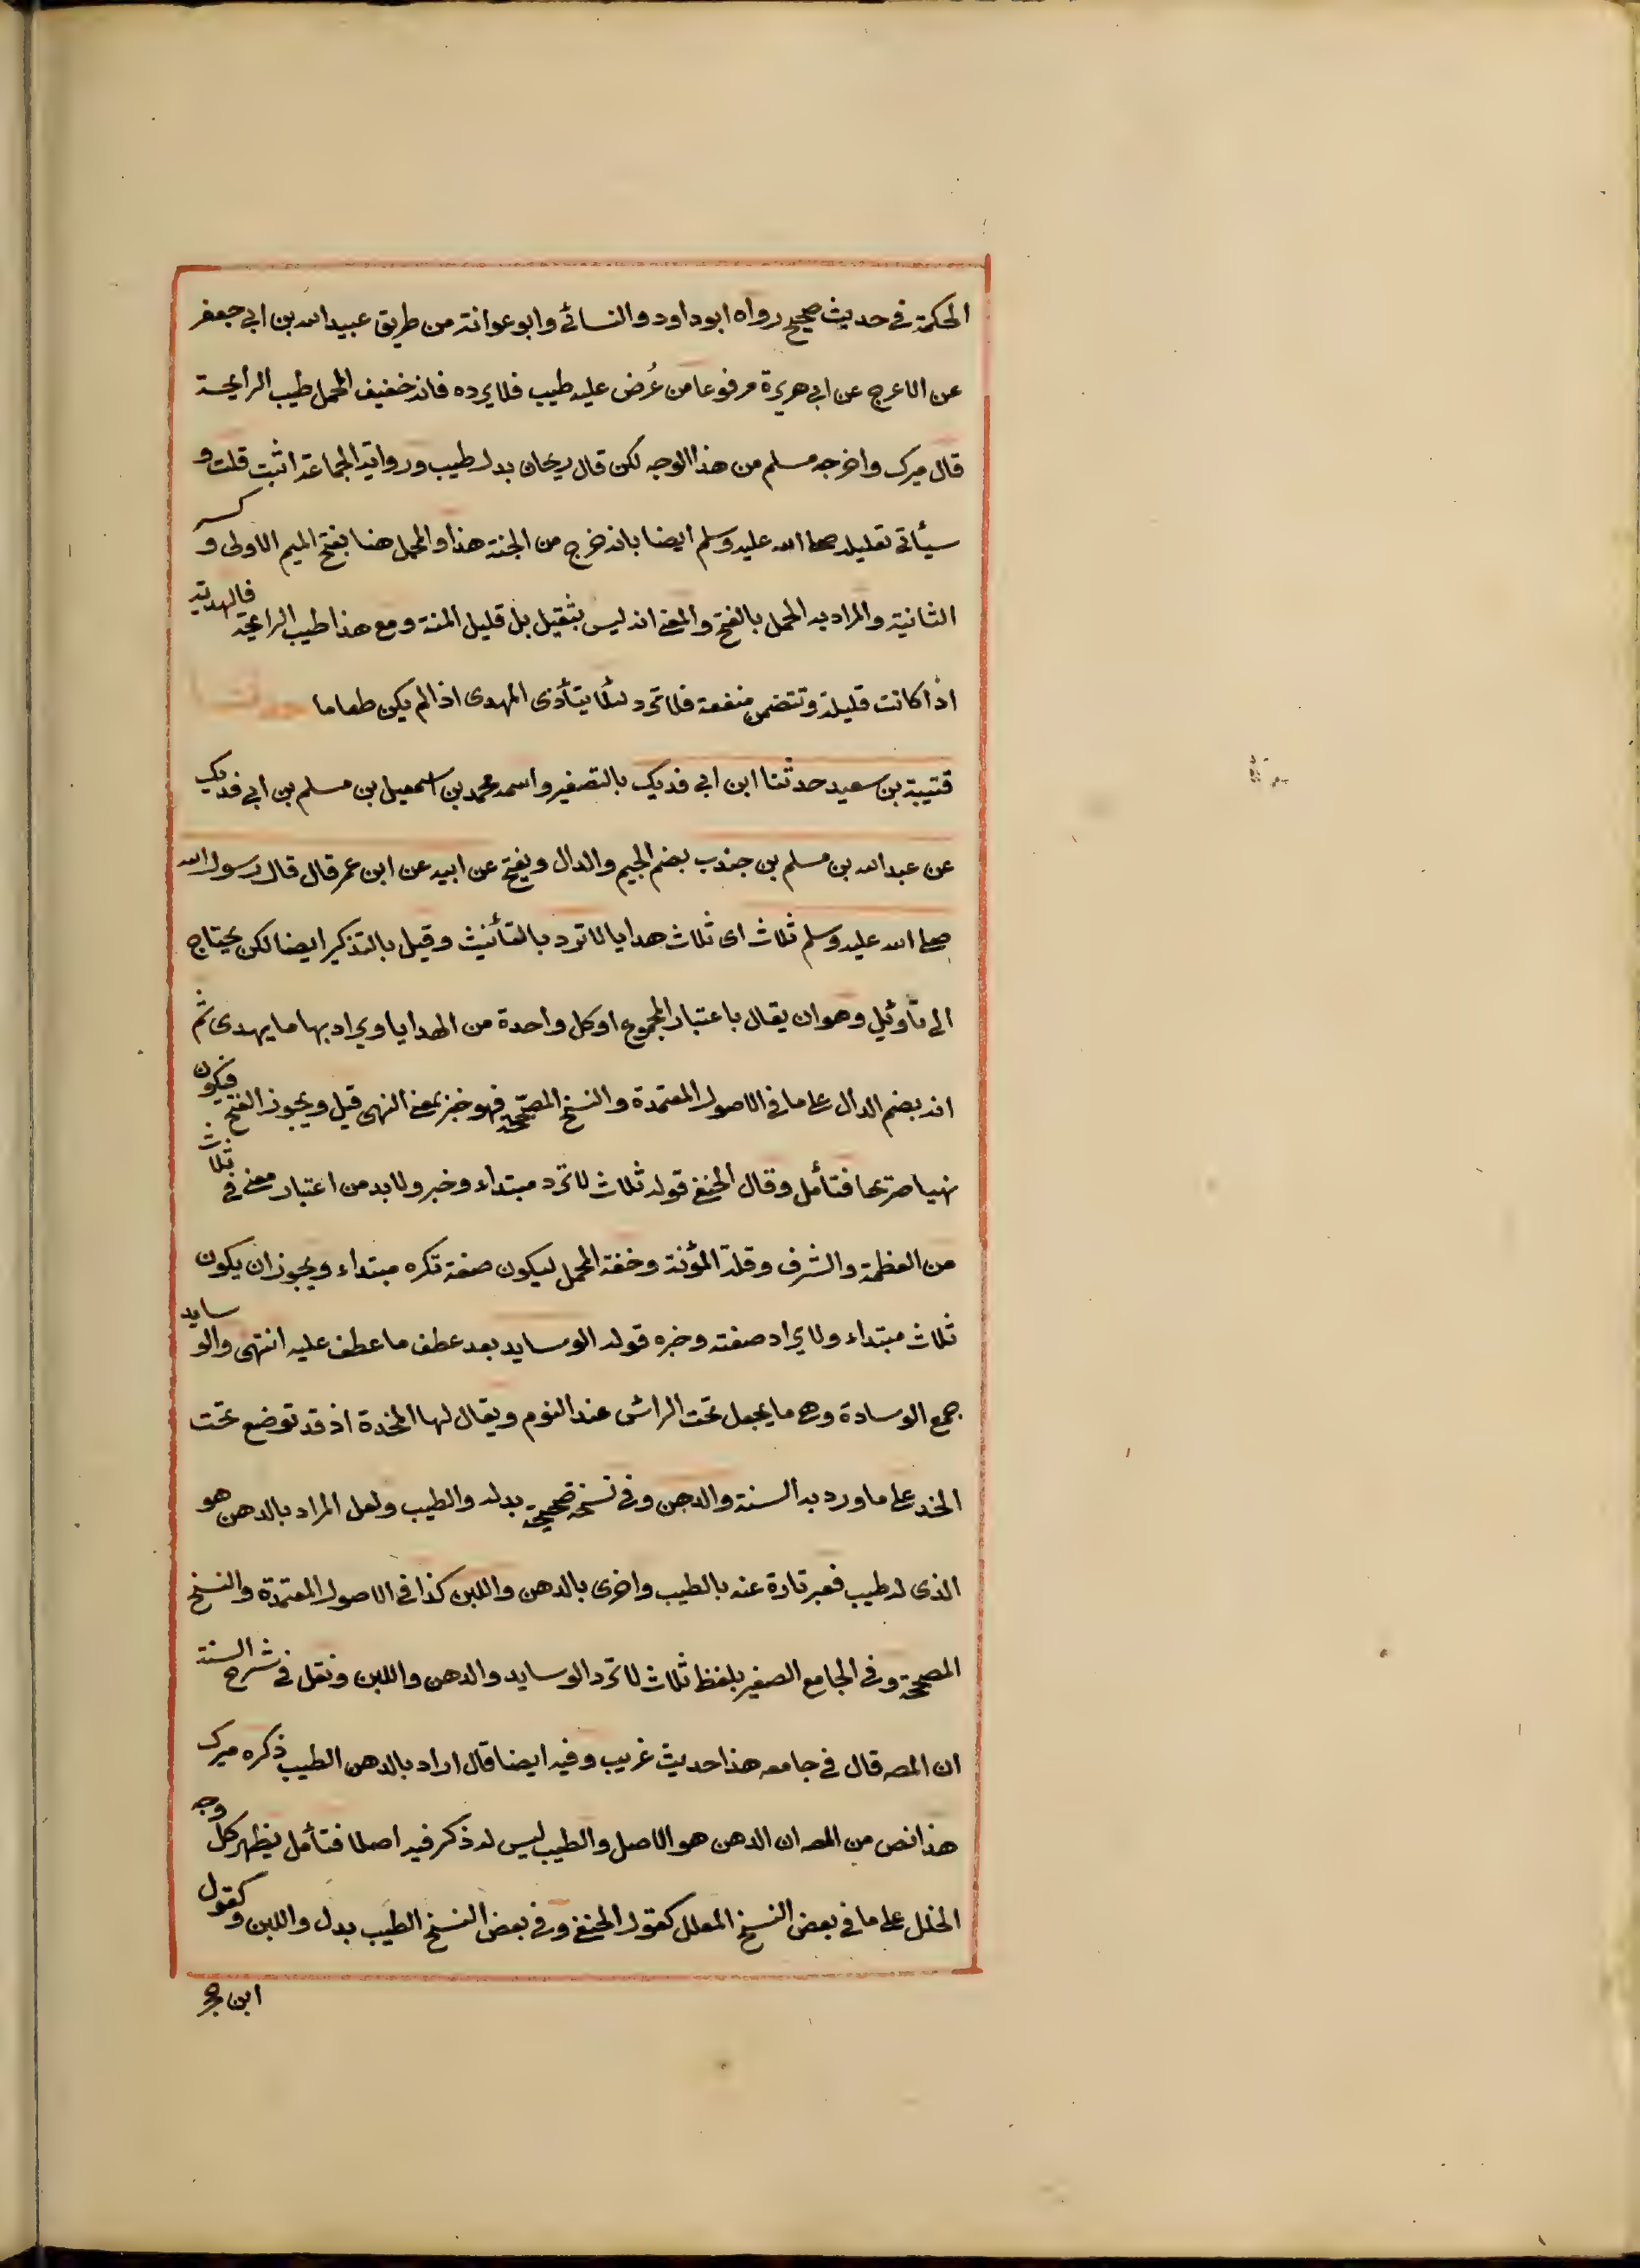 الحكمة في حديث صحيح رواه ابو داود والنسائي وابو عوانة من طريق عبيد الله بن ابي جعفر
عن الاعرج عن ابي هريرة مرفوعا من عُرض عليه طيب فلا يرده فانه خفيف المحمل طيب الرايحة
قال ميرك واخرجه مسلم من هذا الوجه لكن قال ريحان بدل طيب ورواية الجماعة اثبت قلت و
سيأتي تعليله صلى الله عليه وسلم ايضا بانه خرج من الجنة هذا والمحمل هنا بفتح الميم الاولى وكسر
الثانية والمراد به الحمل بالفتح والمعنى انه ليس بثقيل بل قليل المنة ومع هذا طيب الرائحة فالهدية
اذا كانت قليلة وتتضمن منفعة فلا ترد لئلا يتأذى المهدى اذا لم يكن طعاما حدثنا
قتيبة بن سعيد حدثنا ابن ابي فديك بالتصغير واسمه محمد بن اسمعيل بن مسلم بن ابي فديك
عن عبد الله بن مسلم بن جندب بضم الجيم والدال ويفتح عن ابيه عن ابن عمر قال قال رسول الله
صلى الله عليه وسلم ثلاث اى ثلاث هدايا لا ترد بالتأنيث وقيل بالتذكير ايضا لكن يحتاج
الى تأويل وهو ان يقال باعتبار المجموع او كل واحدة من الهدايا ويراد بها ما يهدى ثم
انه بضم الدال على ما في الاصول المعتمدة والنسخ المصححة فهو خبر بمعنى النهى قيل ويجوز الفتح فيكون
نهيا صريحا فتأمل وقال الحنفي قوله ثلاث لا ترد مبتداء وخبر ولا بد من اعتبار معنى في ثلاث
من العظمة والشرف وقلة المؤنة وخفة المحمل ليكون صفة نكره مبتداء ويجوز ان يكون
ثلاث مبتداء ولا يراد صفته وخبره قوله الوسايد بعد عطف ما عطف عليه انتهى والوسايد
جمع الوسادة وهى ما يجعل تحت الراس عند النوم ويقال لها المخدة اذ قد توضع تحت
الخد على ما ورد به السنة والدهن وفي نسخة صحيحة بدله والطيب ولعل المراد بالدهن هو
الذى له طيب فعبر تارة عنه بالطيب واخرى بالدهن واللبن كذا في الاصول المعتمدة والنسخ
المصححة وفي الجامع الصغير بلفظ ثلاث لا ترد الوسايد والدهن واللبن ونقل في شرح السنة
ان المصـ قال في جامعه هذا حديث غريب وفيه ايضا قال اراد بالدهن الطيب ذكره ميرك
هذا نص من المصـ ان الدهن هو الاصل والطيب ليس له ذكر فيه اصلا فتأمل يظهر كل وجه
الخلل على ما في بعض النسخ المعلل كقول الحنفي وفي بعض النسخ الطيب بدل واللبن وكقول
ابن حجر